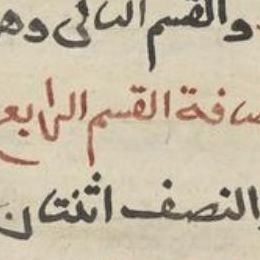 والقسم الثانى وهو
مسافة القسم الرابع
والنصف اثنتان